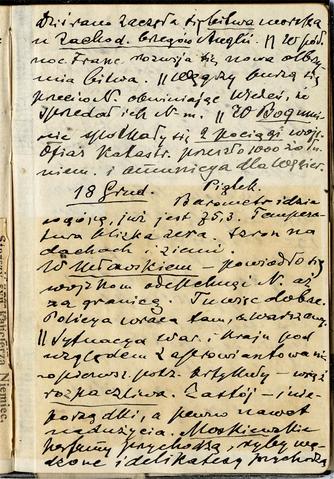 Dziś rano zaczęła się bitwa morska
u zachod. brzegów Anglii. || W pół-
noc. Franc. rozwija się nowa olbrzy-
mia bitwa. || Węgrzy burzą się
przeciw N. obwiniając Wiedeń, że
sprzedał ich N. || W Bogumi-
nie spotkały się 2 pociągi wojs.
Ofiar katastr. przeszło 1000 żoł-
niem. i amunicja dla Węgier.
18 Grud. Piątek.
Barometr idzie
w górę, już jest 75,3. Tempera-
tura bliska zera. Szron na
dachach i ziemi.
W Mławskiem – powiodło się
wojskom odepchnąć N. aż
za granicę. Tu więc dobrze.
Policya wraca tam, z Warszawy.
|| Sytuacya War. i Kraju pod
względem zaprowiantowania
w pierwsz. potrz. artykuły – wciąż
rozpaczliwa. Zastój – i nie-
porządki, a pewno nawet
nadużycia. Moskiewskie
perfumy przychodzą, ryby wę-
dzone i delikatesy przychodzą
Niemiec.